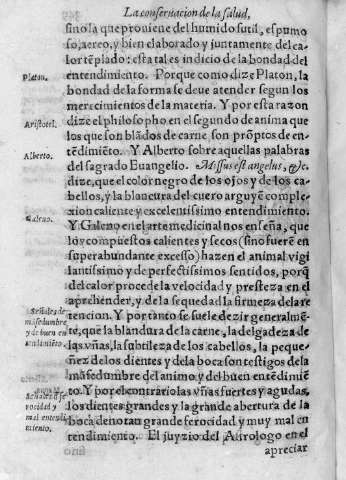 La conseruacion de la salud,
sino la que proviene del humido sutil, espumo
so, aereo, y bien elaborado y juntamente del ca-
lor tẽplado: esta tal es indicio de la bondad del
entendimiento. Porque como dize Platon, la
Platon.
bondad de la forma se deue atender segun los
merecimientos de la materia. Y por esta razon
dize el philosopho en el segundo de anima que
Aristotel.
los que son blãdos de carne, son prõptos de en-
tẽdimiẽto. Y Alberto sobre aquellas palabras
Alberto.
del sagrado Euangelio. Missus est angelus, &c.
dize, que el color negro de los ojos y de los ca-
bellos, y la blancura del cuero arguyẽ comple-
xion caliente y excelentissimo entendimiento.
Y Galeno en el arte medicinal nos enseña, que
Galeno.
los cõpuestos calientes y secos (sino fuerẽ en
superabundante excesso) hazen el animal vigi
lantissimo y de perfectissimos sentidos, porq̃
del calor procede la velocidad y presteza en el
aprehender, y de la sequedad la firmeza de la re
tencion. Y por tanto se suele dezir generalmẽ-
Señales de
māsedumbre
y de buen en
tendimiẽto.
te, que la blandura de la carne, la delgadeza de
las vñas, la subtileza de los cabellos, la peque-
ñez de los dientes y de la boca son testigos de la
māsedumbre del animo y del buen entẽdimiẽ
to. Y por el contrario las vñas fuertes y agudas,
Señales de fe
rocidad y
mal entendi
miento.
los dientes grandes y la grande abertura de la
boca denotan grande ferocidad y muy mal en
tendimiento. El juyzio del Astrologo en el
apreciar